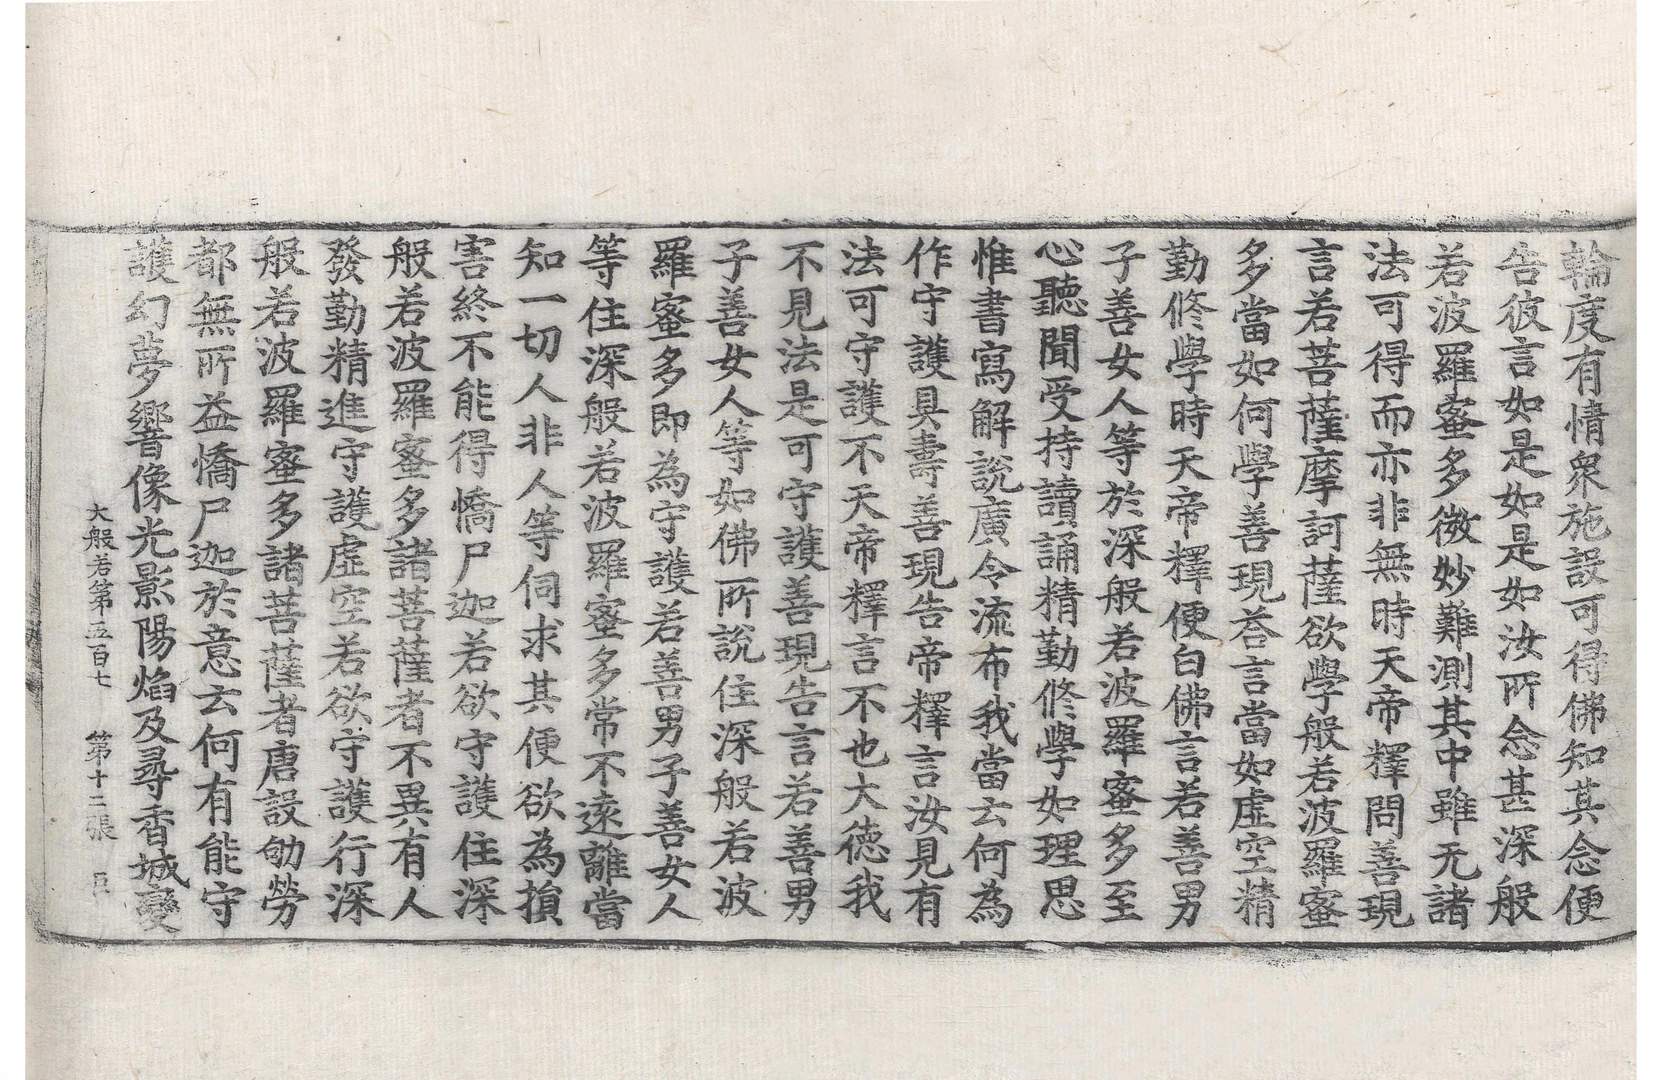 輪度有情衆施設可得佛知其念便
告彼言如是如是如汝所念甚深般
若波羅蜜多微妙難測其中雖无諸
法可得而亦非無時天帝釋問善現
言若菩薩摩訶薩欲學般若波羅蜜
多當如何學善現荅言當如虛空精
勤修學時天帝釋便白佛言若善男
子善女人等於深般若波羅蜜多至
心聽聞受持讀誦精勤修學如理思
惟書寫解說廣令流布我當云何為
作守護具壽善現告帝釋言汝見有
法可守護不天帝釋言不也大德我
不見法是可守護善現告言若善男
子善女人等如佛所說住深般若波
羅蜜多即為守護若善男子善女人
等住深般若波羅蜜多常不遠離當
知一切人非人等伺求其便欲為損
害終不能得憍尸迦若欲守護住深
般若波羅蜜多諸菩薩者不異有人
發勤精進守護虛空若欲守護行深
般若波羅蜜多諸菩薩者唐設劬勞
都無所益憍尸迦於意云何有能守
護幻夢響像光影陽焰及尋香城變
大般若第五百七　第十二張